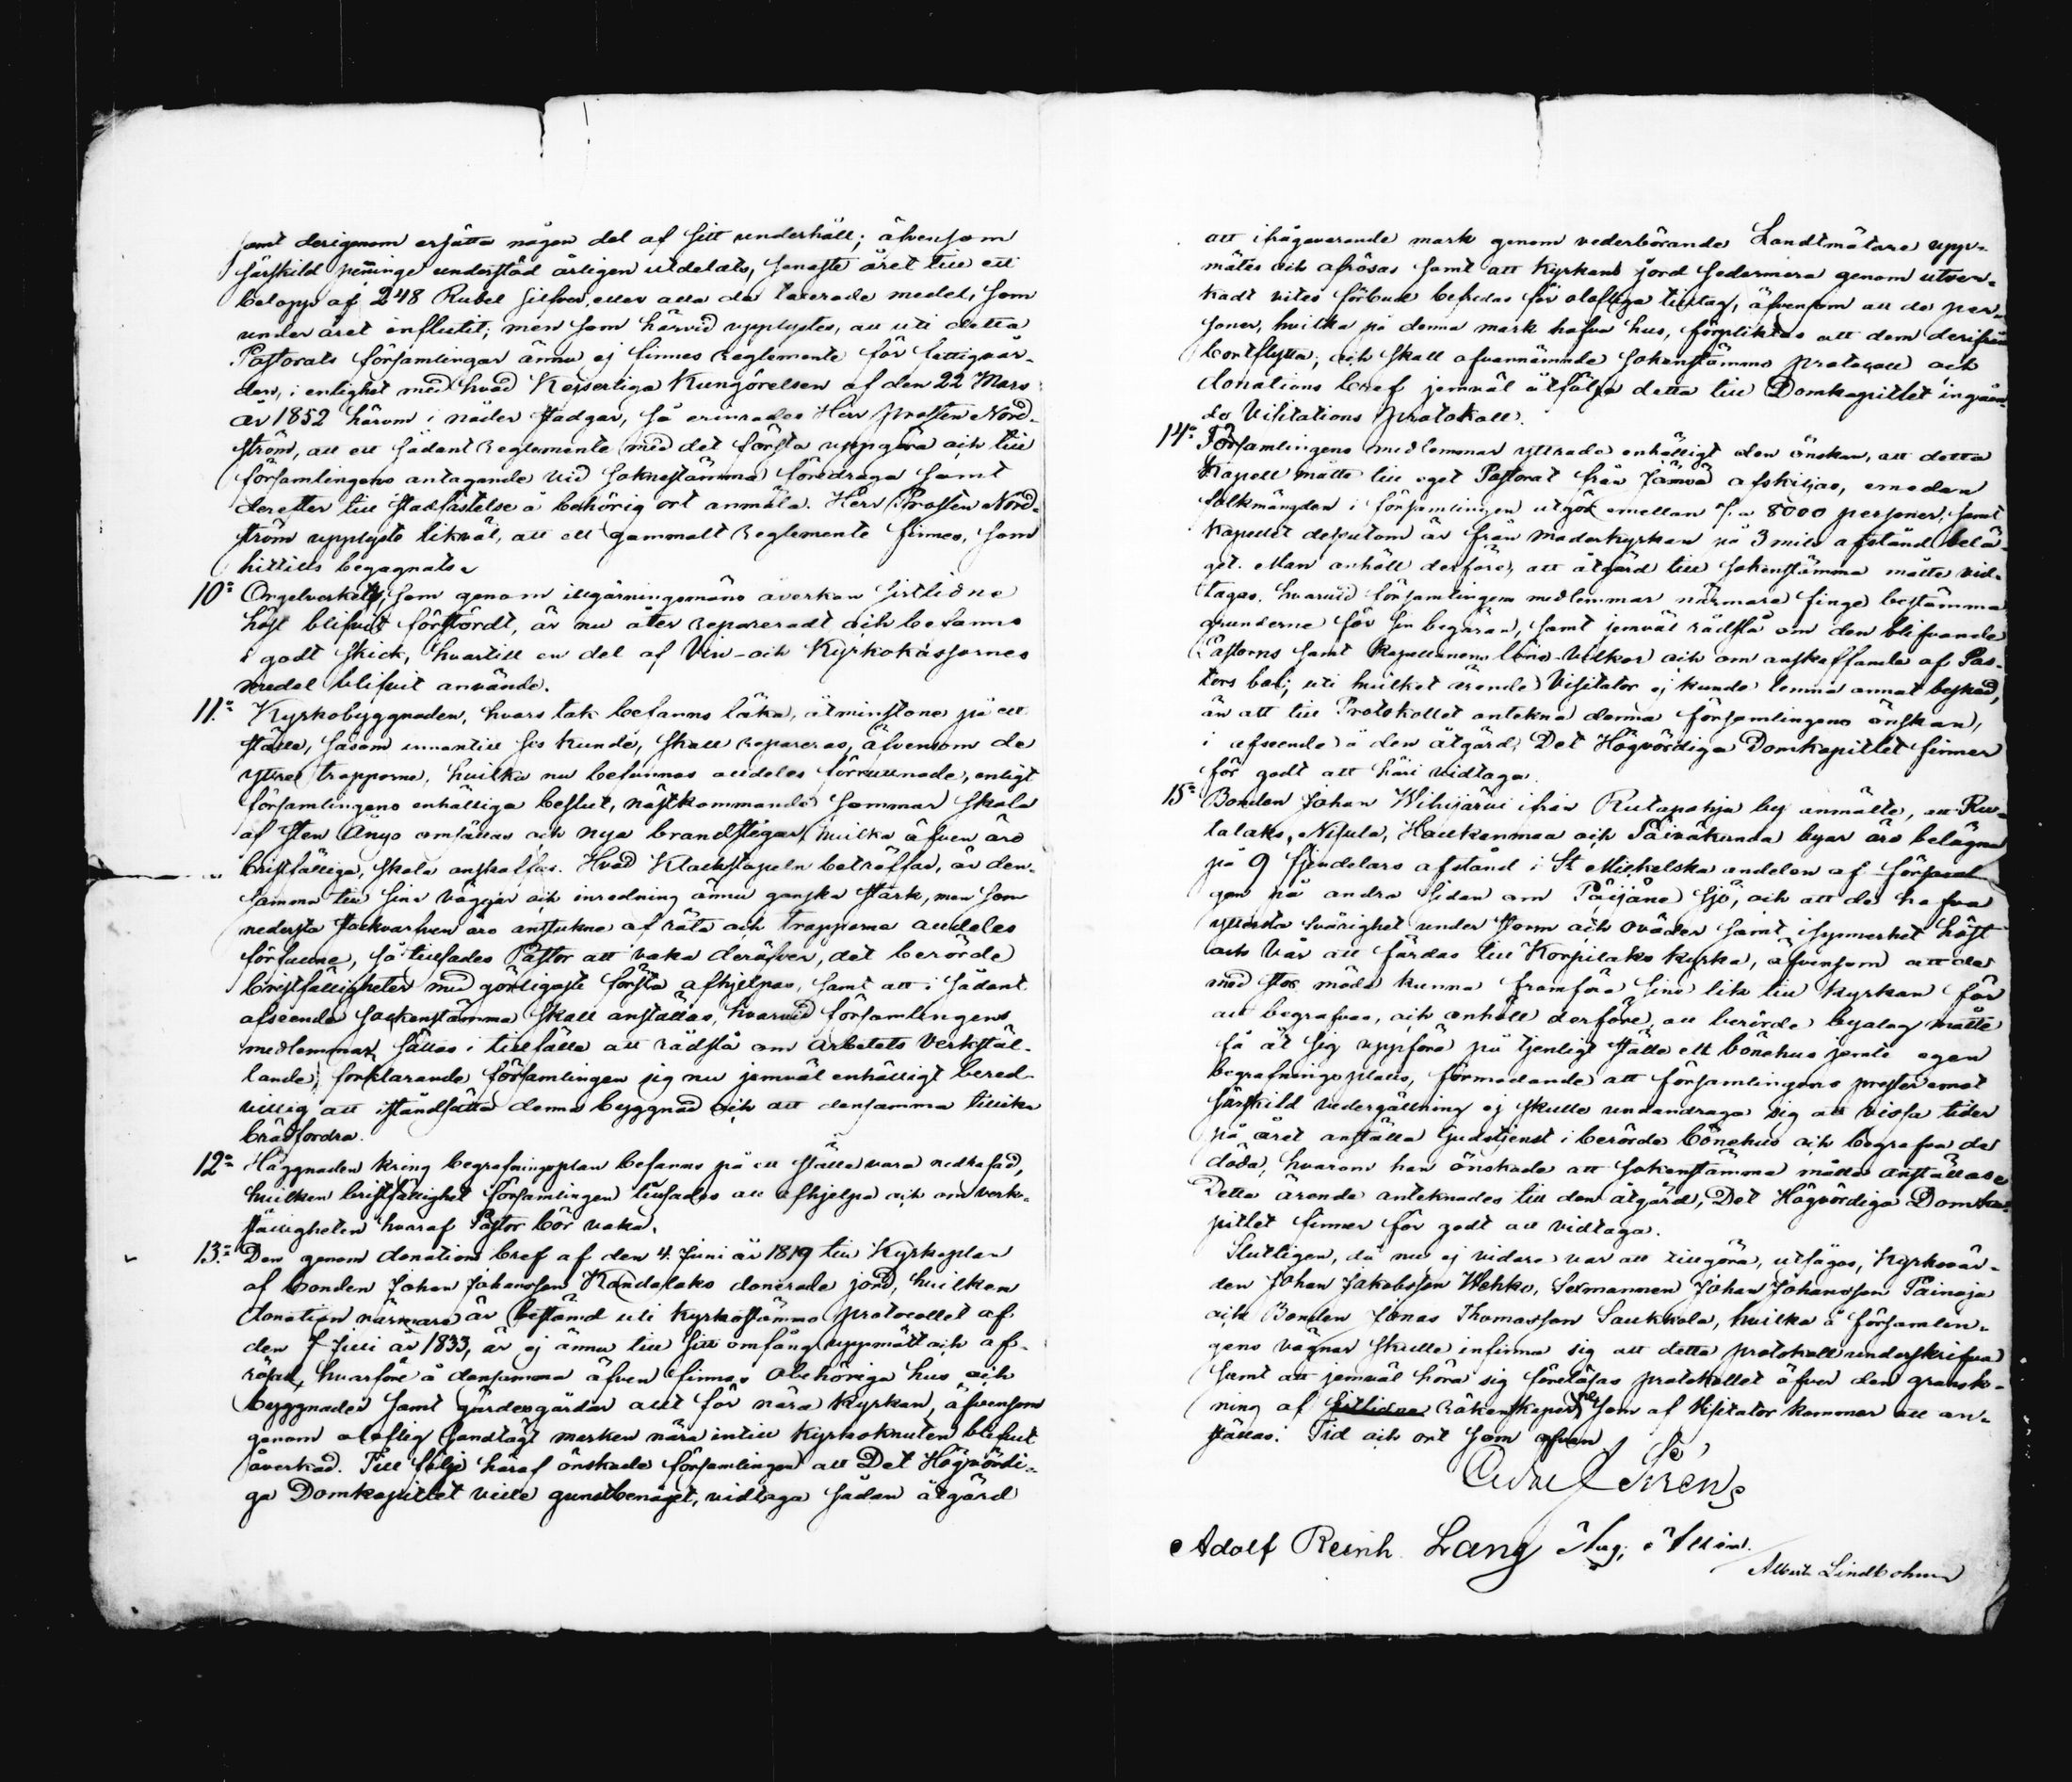 samt derigenom ersätta någon del af sitt underhåll; äfvensom
särskild penninge understöd årligen utdelats, senaste året till ett
belopp af 248 Rubel silfver, eller alla de taxerade medel, som
under året influtit; men som härvid upplystes, att uti detta
Pastorats församlingar ännu ej finnes Reglemente för fattigvår-
den, i enlighet med hvad Kejserliga Kungörelsen af den 22 Mars
år 1852 härom i nåder stadgar, så erinrades Herr Prosten Nord-
ström, att ett sådant Reglemente med det första uppgöra och till
församlingens antagande vid Soknestämma föredraga samt
derefter till stadfästelse å behörig ort anmäla. Herr Prosten Nord-
ström upplyste likväl, att ett gammalt Reglemente finnes, som
hittills begagnats.
10:o Orgelverket, som genom illgärningsmäns åverkan sistlidne
höst blifvit förstördt, är nu åter repareradt och befanns
i godt skick, hvartill en del af Vin- och Kyrkokassornes
medel blifvit använde.
11:o Kyrkobyggnaden, hvars tak befanns läka, åtminstone på ett
ställe, såsom innantill ses kunde, skall repareras, äfvensom de
yttre trapporne, hvilka nu befunnos alldeles förruttnade, enligt
församlingens enhälliga beslut, nästkommande sommar skola
af sten ånyo omsättas och nya brandstegar, hvilka äfven äro
bristfälliga, skola anskaffas. Hvad Klockstapeln beträffar, är den-
samma till sina väggar och inredning ännu ganska stark, men som
nedersta stockvarfven äro anstuckna af röta och trapporna alldeles
förfallne, så tillsades Pastor att vaka deröfver, det berörde
bristfälligheter med görligaste första afhjelpas, samt att i sådant
afseende sockenstämma skall anställas, hvarvid församlingens
medlemmar sättas i tillfälle att rådslå om arbetets verkstäl-
lande; förklarande församlingen sig nu jemväl enhälligt bered-
villig att iståndsätta denna byggnad och att densamma tillika
brädfordra.
12:o Häggnaden kring begrafningsplan befanns på ett ställe vara nedrasad,
hvilken bristfällighet församlingen tillsades att afhjelpa och om verk-
ställigheten hvaraf Pastor bör vaka.
13:o Den genom donations bref af den 4 Juni år 1819 till Kyrkoplan
af bonden Johan Johansson Kandelaks donerade jord, hvilken
donation närmare är bestämd uti Kyrkostämmo protocollet af
den 7 Juli år 1833, är ej ännu till sitt omfång uppmätt och af-
rösad, hvarföre å densamma äfven finnes obehöriga hus och
byggnader samt gärdesgårdar allt för nära Kyrkan, äfvensom
genom olaflig handtägt marken nära intill Kyrkoknuten blifvit
åverkad. Till följe häraf önskade församlingen att Det Högvördi-
ga Domkapitlet ville gunstbenäget, vidtaga sådan åtgärd
att ifrågavarande mark genom vederbörande Landtmätare upp-
mätes och afrösas samt att Kyrkans jord sedermera genom utver-
kadt vites förbud befredas för olofliga tilltag, äfvensom att de per-
soner, hvilka på denna mark hafva hus, förpliktas att dem derifrån
bortflytta; och skall ofvannämnde Sokenstämmo protocoll och
donations bref jemväl åtfölja detta till Domkapitlet ingåen-
de Visitations protokoll.
14:o Församlingens medlemmar yttrade enhälligt den önskan, att detta
Kapell måtte till eget Pastorat från Jämsä afskiljas, emedan
folkmängden i församlingen utgör emellan 8000 personer, samt
Kapellet dessutom är från moderkyrkan på 3 mils afstånd belä-
get. Man anhöll derföre, att åtgärd till sokenstämma måtte vid-
tagas, hvarvid församlingens medlemmar närmare finge bestämma
grunderne för sin begäran, samt jemväl rådslå om den blifvande
Pastorns samt Kapellanens löne-vilkor och om anskaffande af Pas-
tors bol; uti hvilket ärende Visitator ej kunde lemna annat besked,
än att till Protokollet antekna denna församlingens önskan,
i afseende å den åtgärd, Det Högvördiga Domkapitlet finner
för godt att häri vidtaga.
15:o Bonden Johan Wihijärvi ifrån Rutapohja by anmälte, att Ru-
talaks, Nisula, Haukanmaa och Päiväkunda byar äro belägna
på 9 fjendelars afstånd i St Michelska andelen af församl
gen på andra sidan om Päijäne sjö, och att de hafva
yttersta svårighet under storm och oväder samt isynnerhet höst
och vår att färdas till Korpilaks kyrka, äfvensom att de
med stor möda kunna framföra sina lik till kyrkan för
att begrafvas, och anhöll derföre, att berörde byalag måtte
få åt sig uppföra på tjenligt ställe ett bönehus jemte egen
begrafningsplats, förmodande att församlingens prester emot
särskild vedergällning ej skulle undandraga sig att vissa tider
på året anställa Gudstjenst i berörde bönehus och begrafva de
döda, hvarom han önskade att sokenstämma måtte anställas.
Detta ärende anteknades till den åtgärd, Det Högvördiga Domka-
pitlet finner för godt att vidtaga.
Slutligen, då nu ej vidare var att tillgöra, utsågos, Kyrkovär-
den Johan Jakobsson Wehko, Sexmannen Johan Johansson Päinaja
och Bonden Jonas Thomasson Saukkola, hvilka å församlin-
gens vägnar skulle infinna sig att detta protokoll underskrifva
samt att jemväl höra sig föreläsas protokollet öfver den gransk-
ning af sistlidne Räkenskaper, som af Visitator kommer att an-
ställas. Tid och ort som ofvan.
Sirén
Adolf Reinh. Lang Aug.
Albert Lindbohm